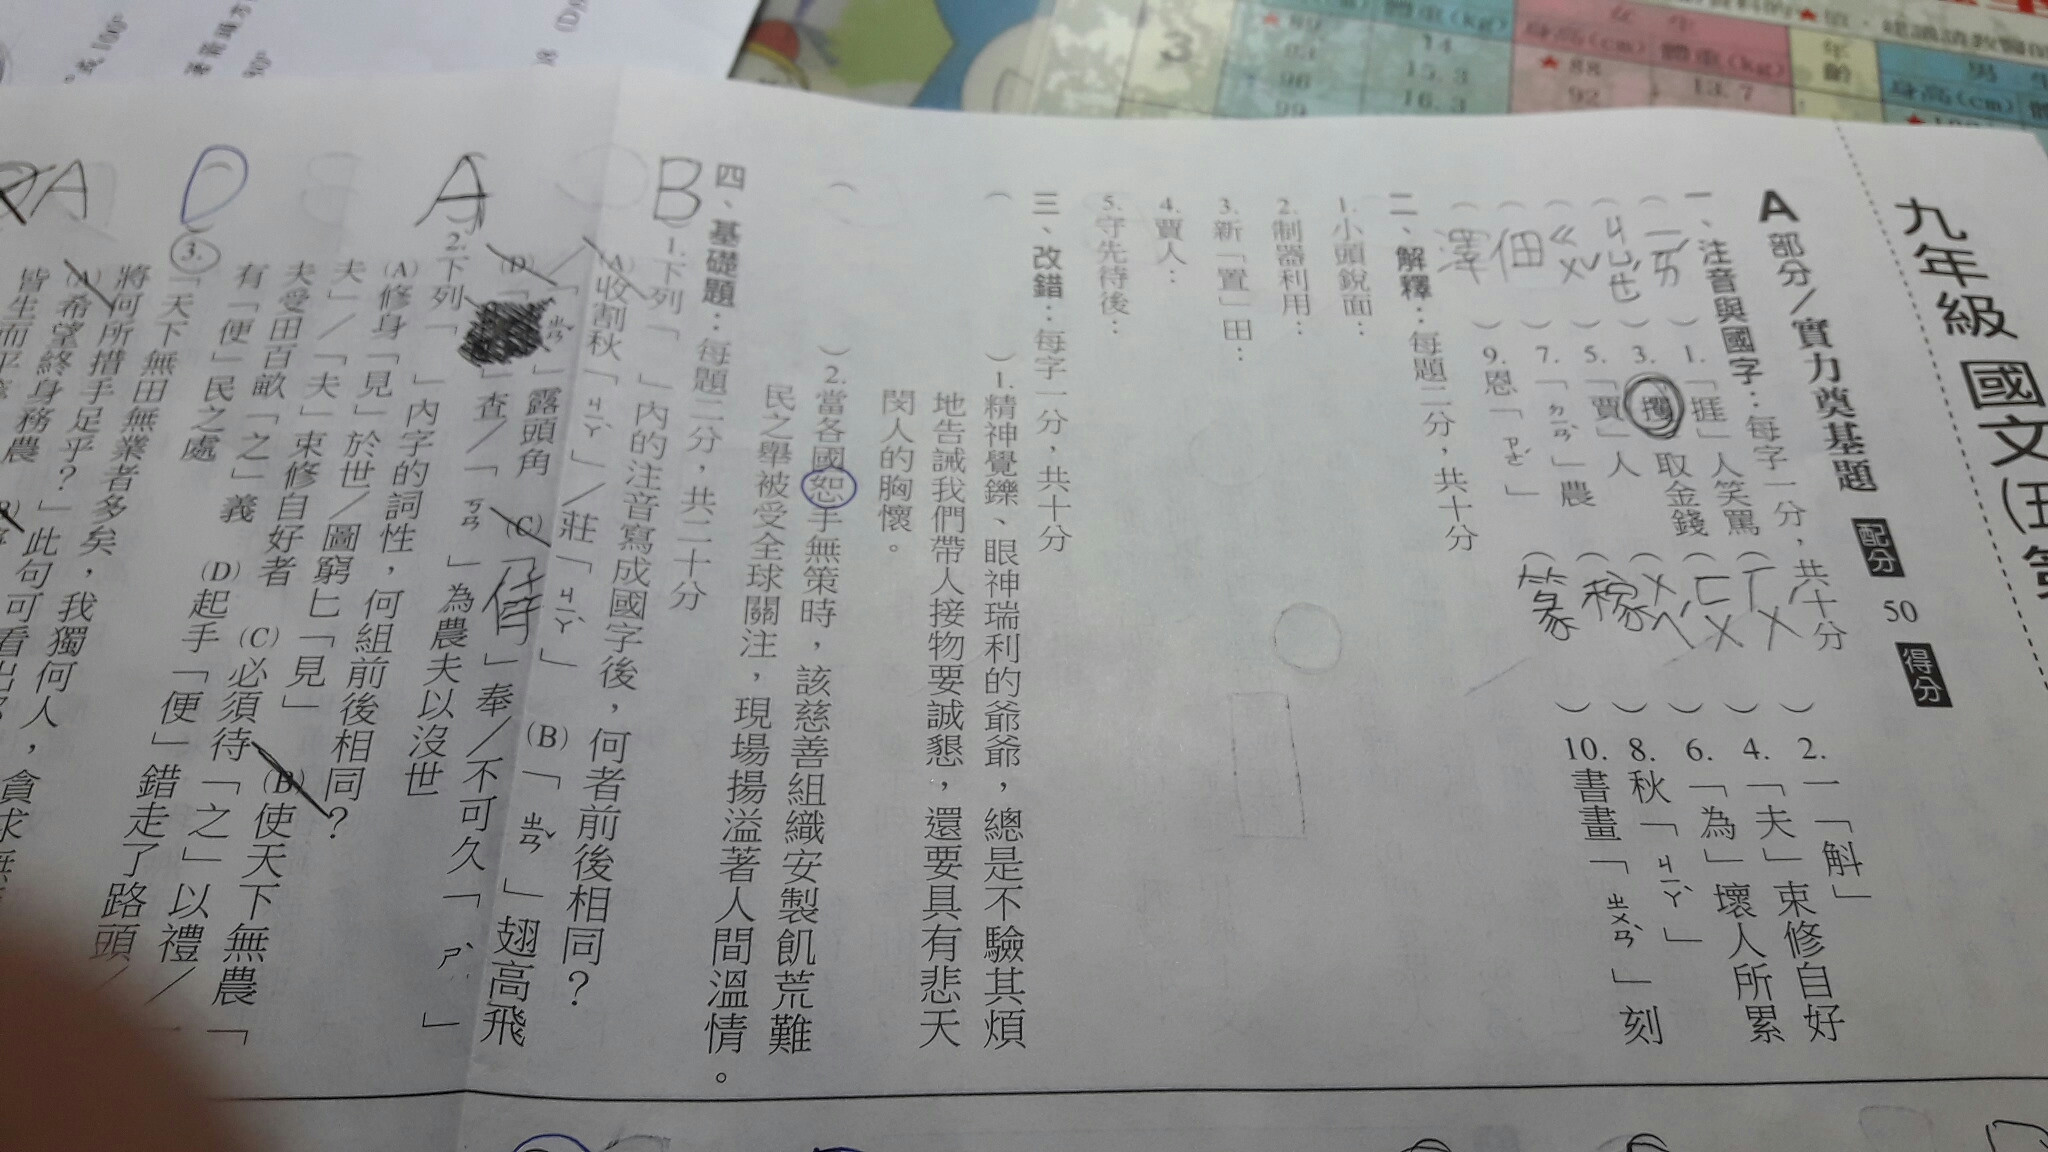 九年級 國文(五
A部分/實力奠基題 配分 50 得分
一、注音與國字:每字一分,共十分
ㄧㄞˊ
)1.「捱」人笑罵
ㄏㄨˊ
)2.一「斛」
ㄐㄩㄝˊ
)3.「攫」取金錢
ㄈㄨˊ
)4.「夫」束修自好
ㄍㄨˇ
)5.「賈」人
ㄨㄟˊ
)6.「為」壞人所累
佃
)7.「ㄉㄧㄢˋ」農
稼
)8.秋「ㄐㄧㄚˋ」
澤
)9.恩「ㄗㄜˊ」
篆
)10.書畫「ㄓㄨㄢˋ」刻
二、解釋:每題二分,共十分
1.小頭銳面:
2.制器利用:
3.新「置」田:
4.賈人:
5.守先待後:
三、改錯:每字一分,共十分
( )1.精神覺鑠、眼神瑞利的爺爺,總是不驗其煩
地告誡我們帶人接物要誠懇,還要具有悲天
閔人的胸懷。
( )2.當各國恕手無策時,該慈善組織安製飢荒難
民之舉被受全球關注,現場揚溢著人間溫情。
四、基礎題:每題二分,共二十分
B
)1.下列「 」內的注音寫成國字後,何者前後相同?
(A)收割秋「ㄐㄧㄚˋ」/莊「ㄐㄧㄚˋ」 (B)「ㄓㄢˇ」翅高飛/
「ㄓㄢˇ」露頭角 (C)「侍」奉/不可久「ㄕˋ」
(D)「 」查/「ㄎㄢ」為農夫以沒世
A
)2.下列「 」內字的詞性,何組前後相同?
(A)修身「見」於世/圖窮匕「見」 (B)使天下無農「
夫」/「夫」束修自好者 (C)必須待「之」以禮/
夫受田百畝「之」義 (D)起手「便」錯走了路頭/
有「便」民之處
D
)3.「天下無田無業者多矣,我獨何人,貪求無
將何所措手足乎?」此句可看出
(A)希望終身務農